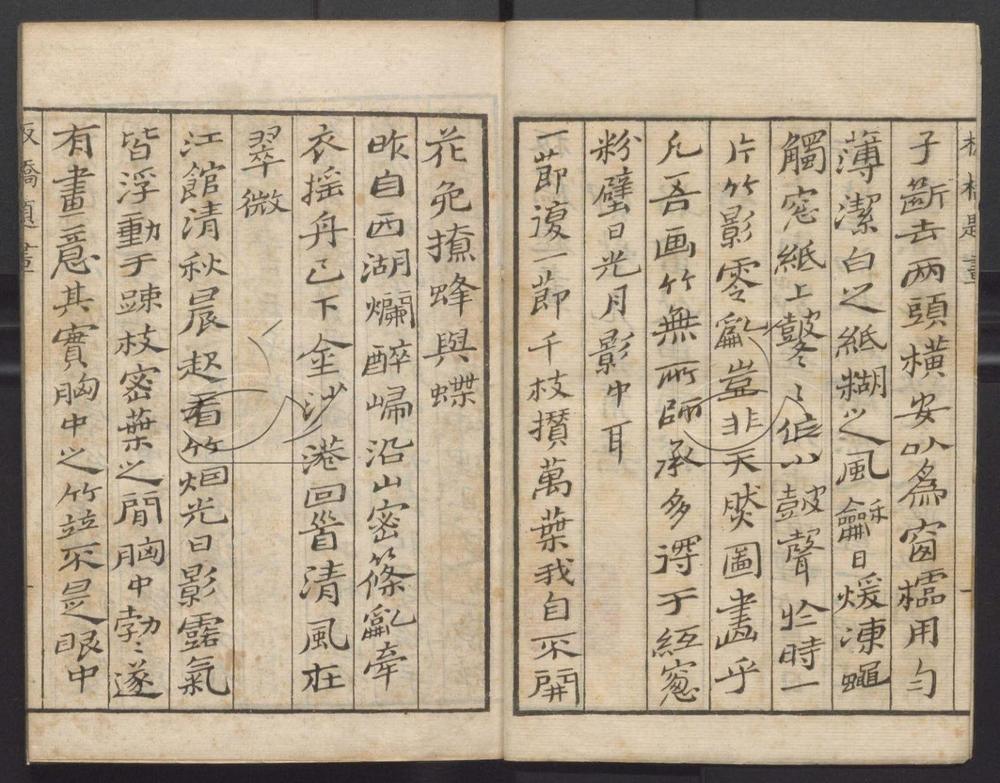 板橋題畫
子斷去兩頭橫安以為窗櫺用勻
薄潔白之紙糊之風龢日煖凍蠅
觸窓紙上鼕〻作小鼓聲於時一
片竹影零亂豈非天然圖畫乎
凡吾画竹無所師承多得于紙窓
粉壁日光月影中耳
一節復一節千枝攢萬葉我自不開
花免撩蜂與蝶
昨自西湖爛醉歸沿山密篠亂牽
衣搖舟已下金沙港回首清風在
翠微
江館清秋晨起看竹烟光日影露氣
皆浮動于踈枝密葉之閒胸中勃〻遂
有畫意其實胸中之竹竝不是眼中
板橋題畫
一
一